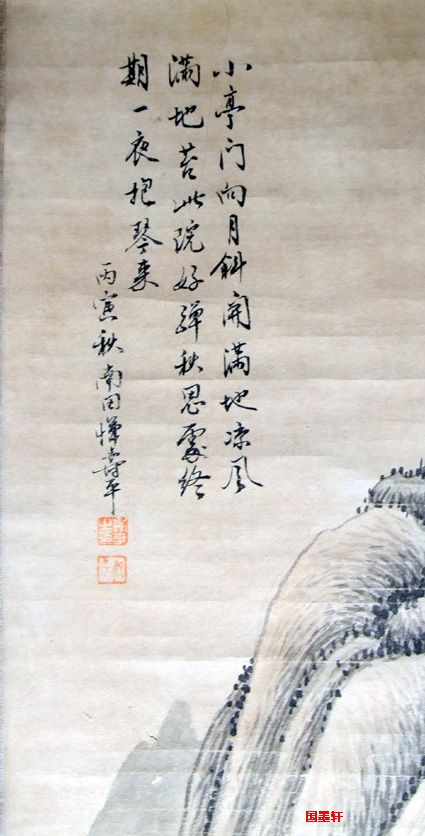 小亭门向月斜开满地凉风
满地苔此院好弹秋思处终
期一夜抱琴来
丙寅秋南田惲壽平
国墨轩